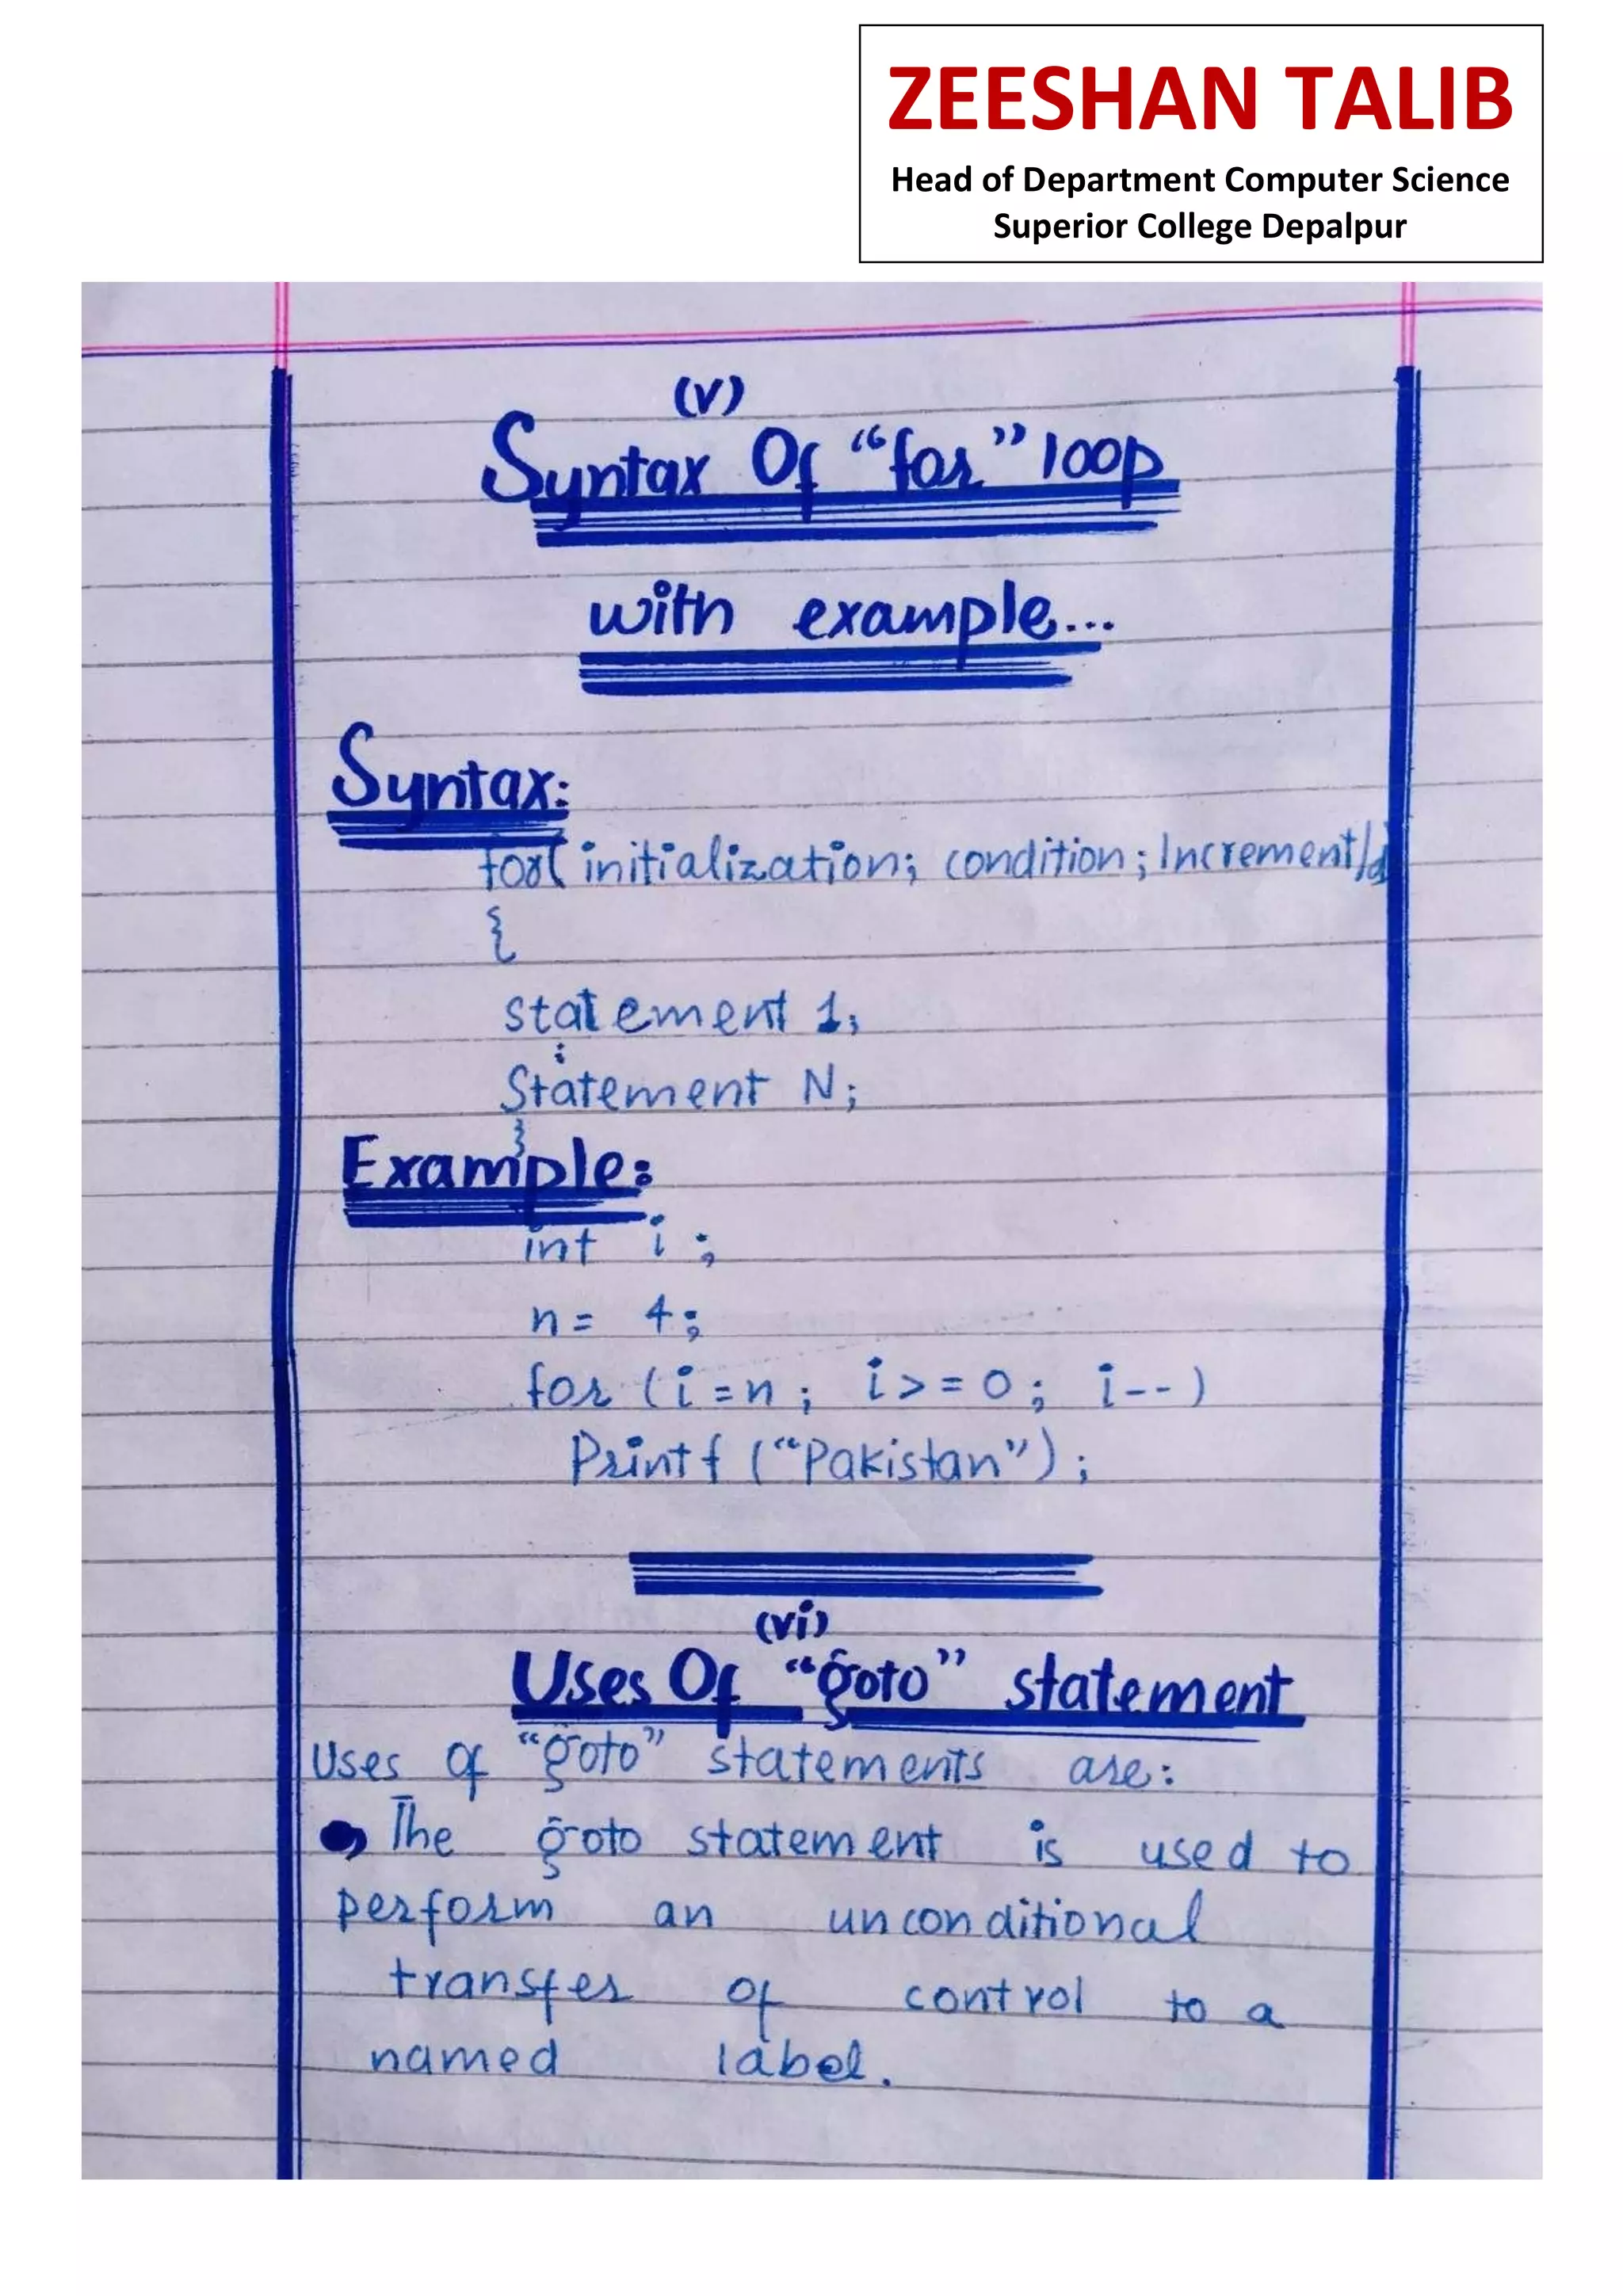 ZEESHAN TALIB
Head of Department Computer Science
Superior College Depalpur
(v)
Syntax Of "for" loop
with example...
Syntax:
for( initialization; condition; Increment/d
{
statement 1;
:
Statement N;
}
Example:
int i ;
n = 4;
for (i=n ; i>=0; i--)
Printf ("Pakistan");
(vi)
Uses Of "goto" statement
Uses of "goto" statements are:
• The goto statement is used to
perform an unconditional
transfer of control to a
named label.